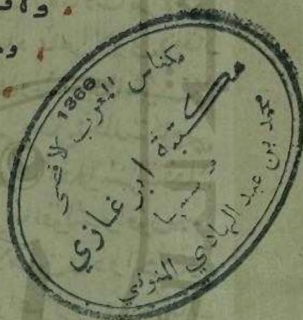 مكناس المغرب الاقصى
1368
مكتبة ابن غازي
محمد بن عبد الهادي المنوني